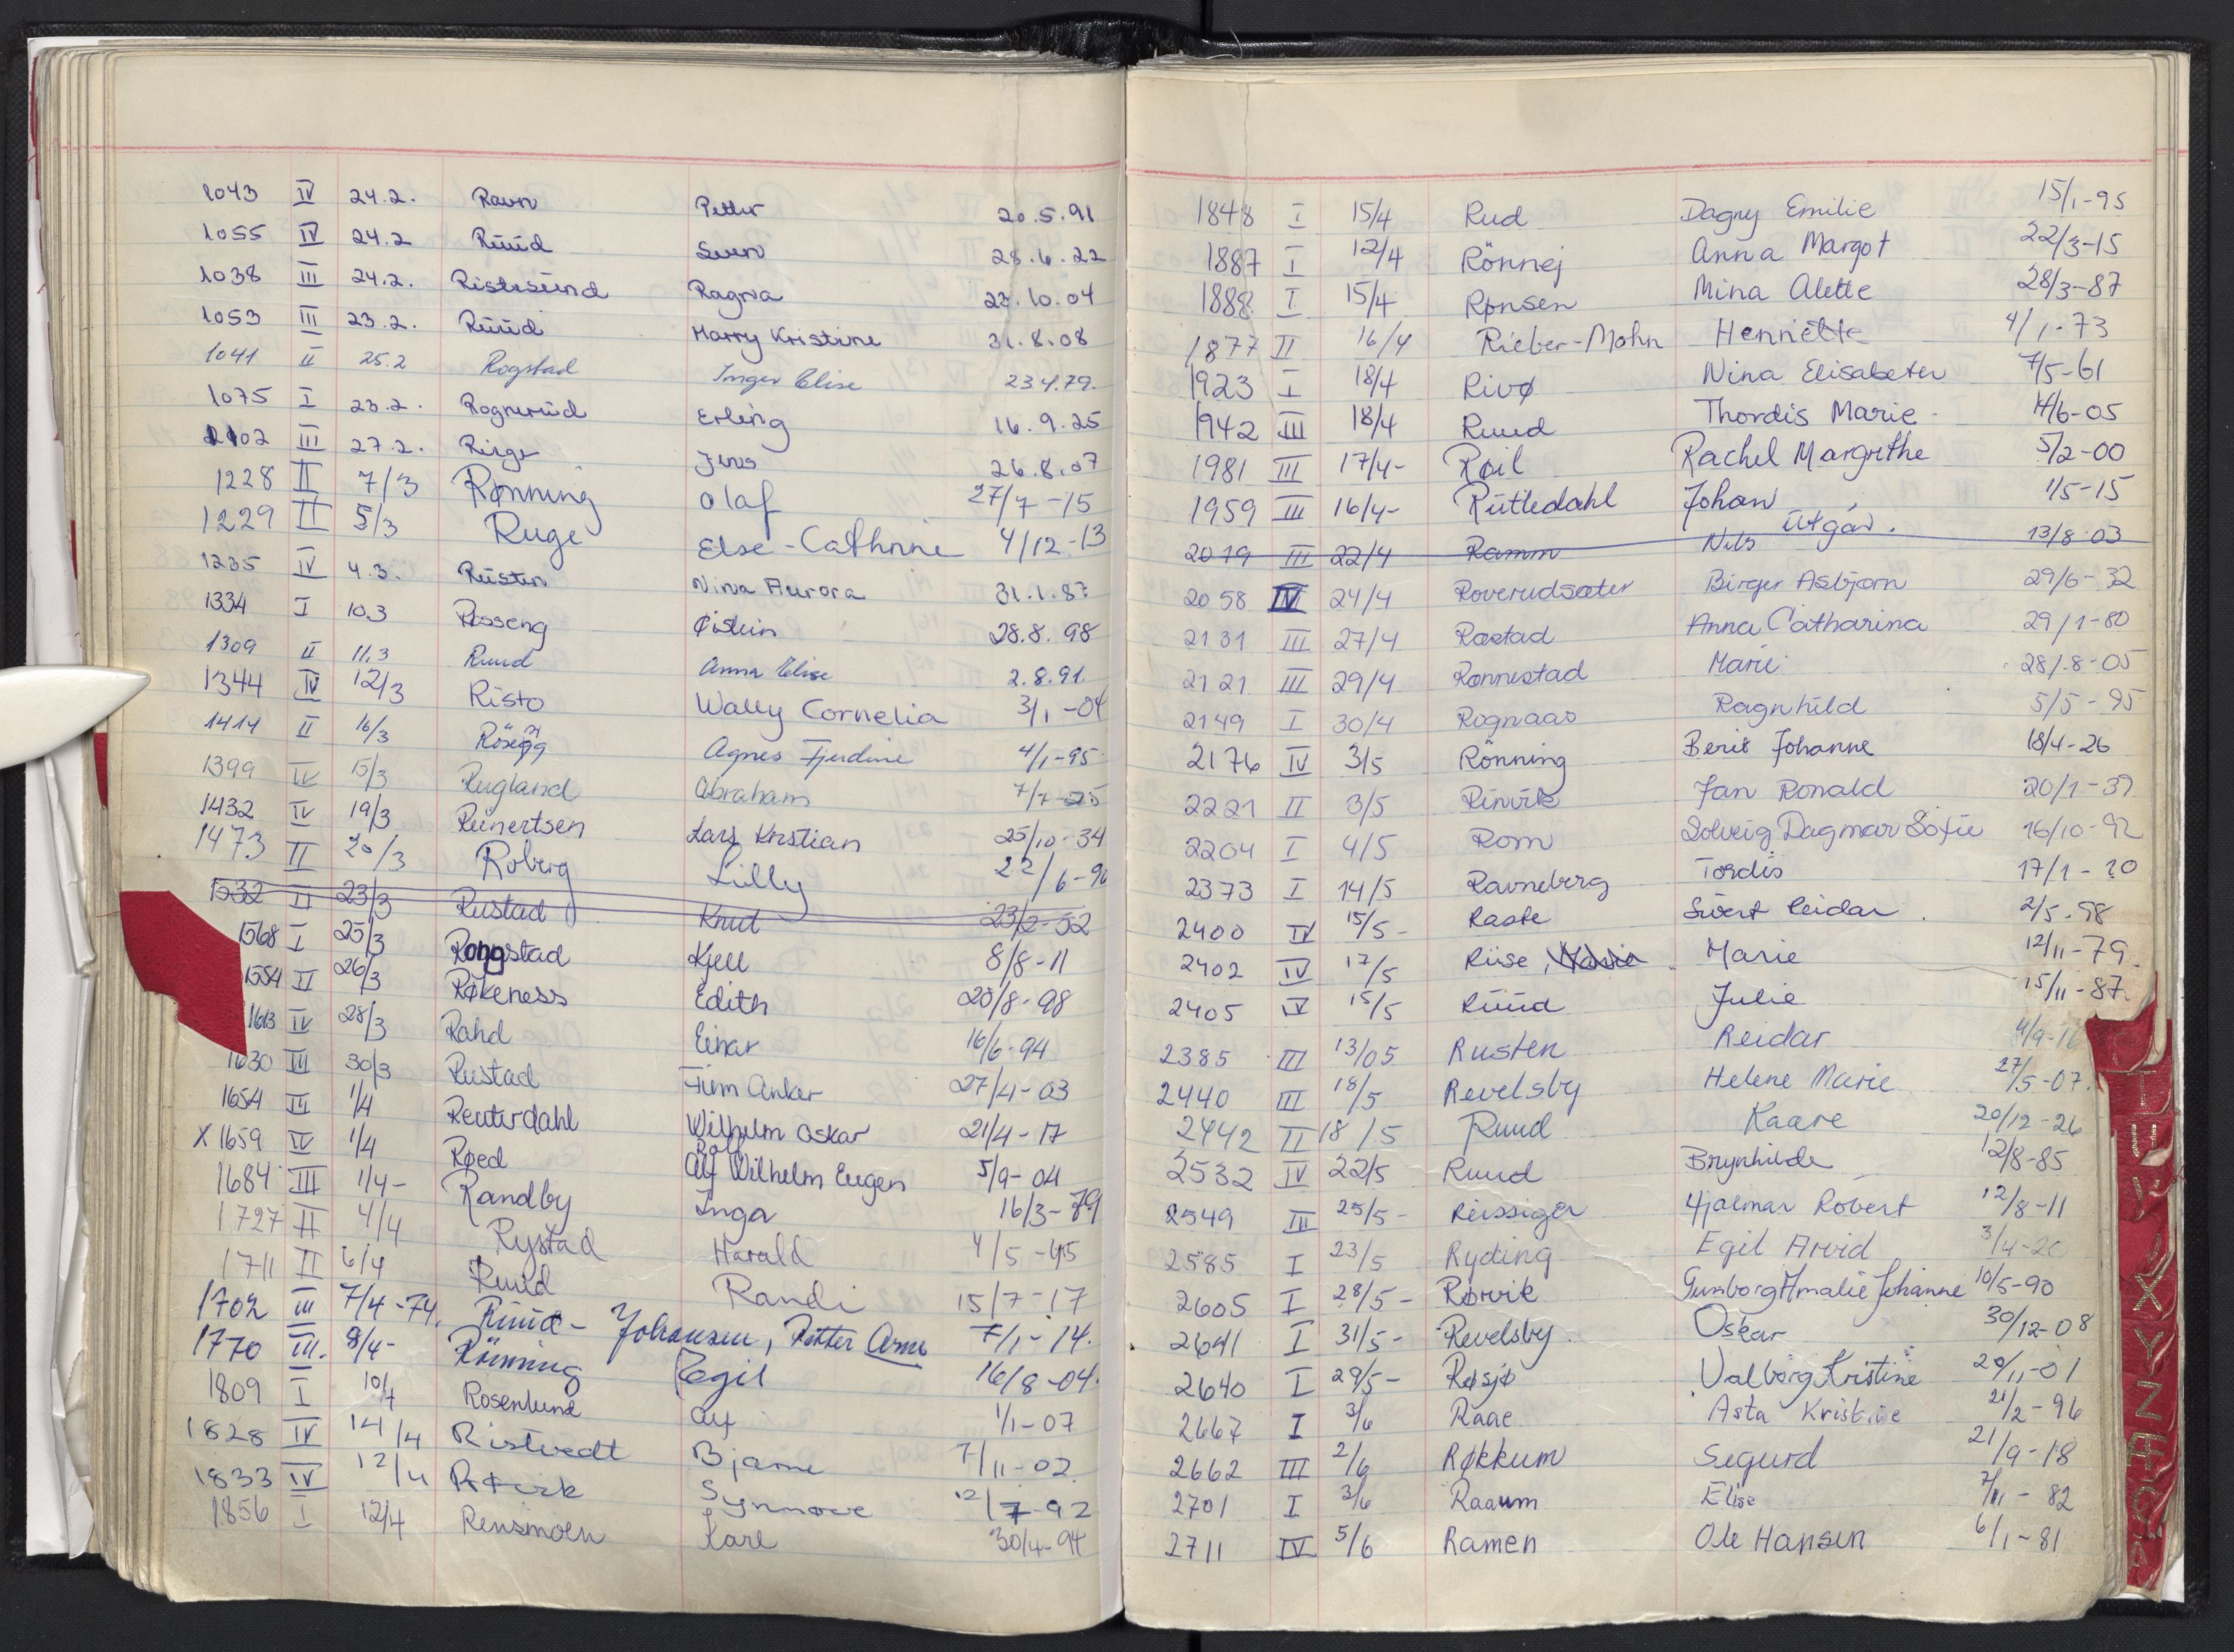 1043 IV 24.2. Ravn Petter 20.5.91
1055 IV 24.2 Ruud Sven 28.6.22
1038 III 24.2. Ristesund Ragna 23.10.04
1053 III 23.2. Ruud Harry Kristine 31.8.08
1041 II 25.2 Rogstad Inger Elise 23.4.79.
1075 I 23.2. Rognerud Erling 16.9.25
1102 III 27.2. Ringe Jens 26.8.07
1228 II 7/3 Rønning Olaf 27/7-15
1229 II 5/3 Ruge Else-Cathrine 4/12-13
1235 IV 4.3. Rusten Nina Aurora 31.1.87
1334 I 10.3 Røsseng Øistein 28.8.98
1309 II 11.3 Ruud Anna Elise 2.8.91
1344 IV 12/3 Risto Wally Cornelia 3/1-04
1414 II 16/3 Agnes Fjerdine 4/1-95
1399 IV 15/3 Rugland Abraham 7/7-25
1432 IV 19/3 Reinertsen Lars Kristian 25/10-34
1473 II 20/3 Roberg Lilly 22/6-90
1532 II 23/3 Rustad Knut 23/2-52
1568 I 25/3 Rongstad Kjell 8/8-11
1584 II 26/3 Røkeness Edith 20/8-98
1613 IV 28/3 Rahd Einar 16/6-94
1630 III 30/3 Rustad Finn Anker 27/4-03
1654 III 1/4 Reuterdahl Wilhelm Oskar 21/4-17
X 1659 IV 1/4 Røed Rolf
Alf Wilhelm Eugen 5/9-04
1684 III 1/4- Randby Inga 16/3-79
1727 II 4/4 Rystad Harald 4/5-45
1711 II 6/4 Ruud Randi 15/7-17
1702 III 7/4-74. Ruud-Johansen, Petter Arne 7/1-14.
1770 III. 8/4- Rönning Egil 16/8-04.
1809 I 10/4 Rosenlund Alf 1/1-07
1828 IV 14/4 Ristvedt Bjarne 7/11-02
1833 IV 12/4 Synnøve 12/7-92
1856 I 12/4 Rensmoen Kare 30/4-94
1848 I 15/4 Rud Dagny Emilie 15/1-95
1887 I 12/4 Rönnej Anna Margot 22/3-15
1888 I 15/4 Rønsen Mina Alette 28/3-87
1877 II 16/4 Rieber-Mohn Henriette 4/1-73
1923 I 18/4 Rivø Nina Elisabeter 7/5-61
1942 III 18/4 Ruud Thordis Marie 14/6-05
1981 III 17/4- Røil Rachel Margrethe 5/2-00
1959 III 16/4- Rutledahl Johan 1/5-15
utgår.
2019 III 22/4 Ramm Nils 13/8-03
2058 IV 24/4 Roverudsæter Birger Asbjørn 29/6-32
2131 III 27/4 Røstad Anna Catharina 29/1-80
2121 III 29/4 Rønnestad Marie 28/8-05
2149 I 30/4 Rognaas Ragnhild 5/5-95
2176 IV 3/5 Rönning Berit Johanne 18/4-26
2221 II 3/5 Rinvik Jan Ronald 20/1-37
2204 I 4/5 Rom Solveig Dagmar Sofie 16/10-92
2373 I 14/5 Ravneberg Tordis 17/1-20
2400 IV 15/5- Raste Sivert Reidar 2/5-98
2402 IV 17/5 Riise, Marie 12/11-79
2405 IV 15/5 Ruud Julie 15/11-87.
2385 III 13/05 Rusten Reidar 4/9-16
2440 III 18/5 Revelsby Helene Marie 27/5-07.
2442 II 18/5 Ruud Kaare 20/12-26
2532 IV 22/5 Ruud Brynhilde 12/8-85
2549 III 25/5- Reissiger Hjalmar Robert 12/8-11
2585 I 23/5 Ryding Egil Arvid 3/4-20
2605 I 28/5- Rørvik Gunborg Amalie Johanne 10/5-90
2641 I 31/5- Revelsby. Oskar 30/12-08
2640 I 29/5- Røsjø Valborg Kristine 20/11-01
2667 I 3/6 Raae Asta Kristine 21/2-96
2662 III 2/6 Røkkum Sigurd 21/9-18
2701 I 3/6 Raaum Elise 7/11-82
2711 IV 5/6 Ramen Ole Hansen 6/1-81
X
Y
Z
Æ
Ø